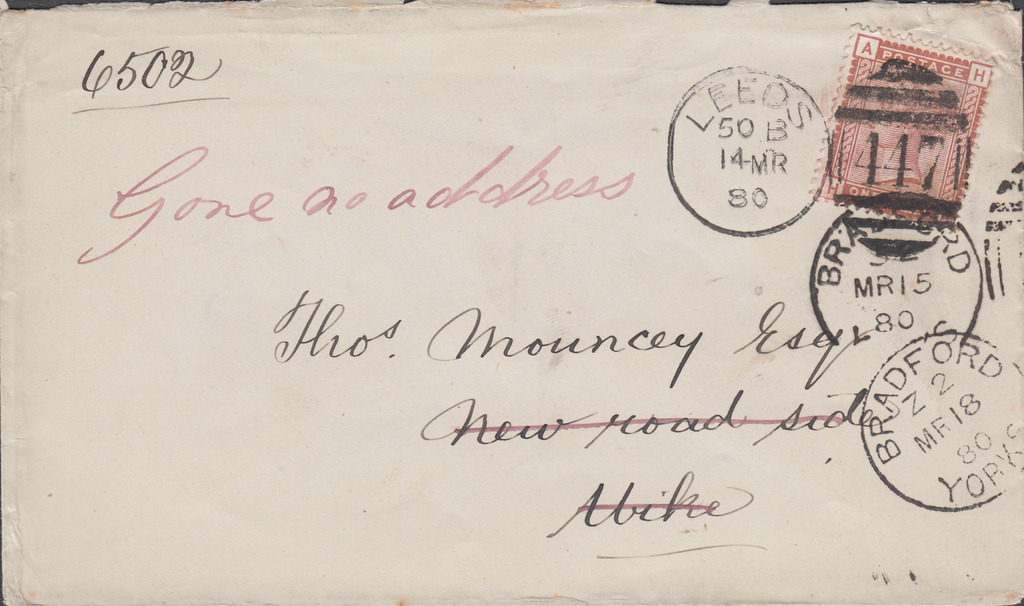 6502
A POSTAGE H
LEEDS
50 B
14 MR
80
447
H ONE
Gone no address
BRADFORD
MR 15
80
Thos. Mouncey Esqr
BRADFORD
Z 2
MR 18
80
YORKS
New road side
Wike